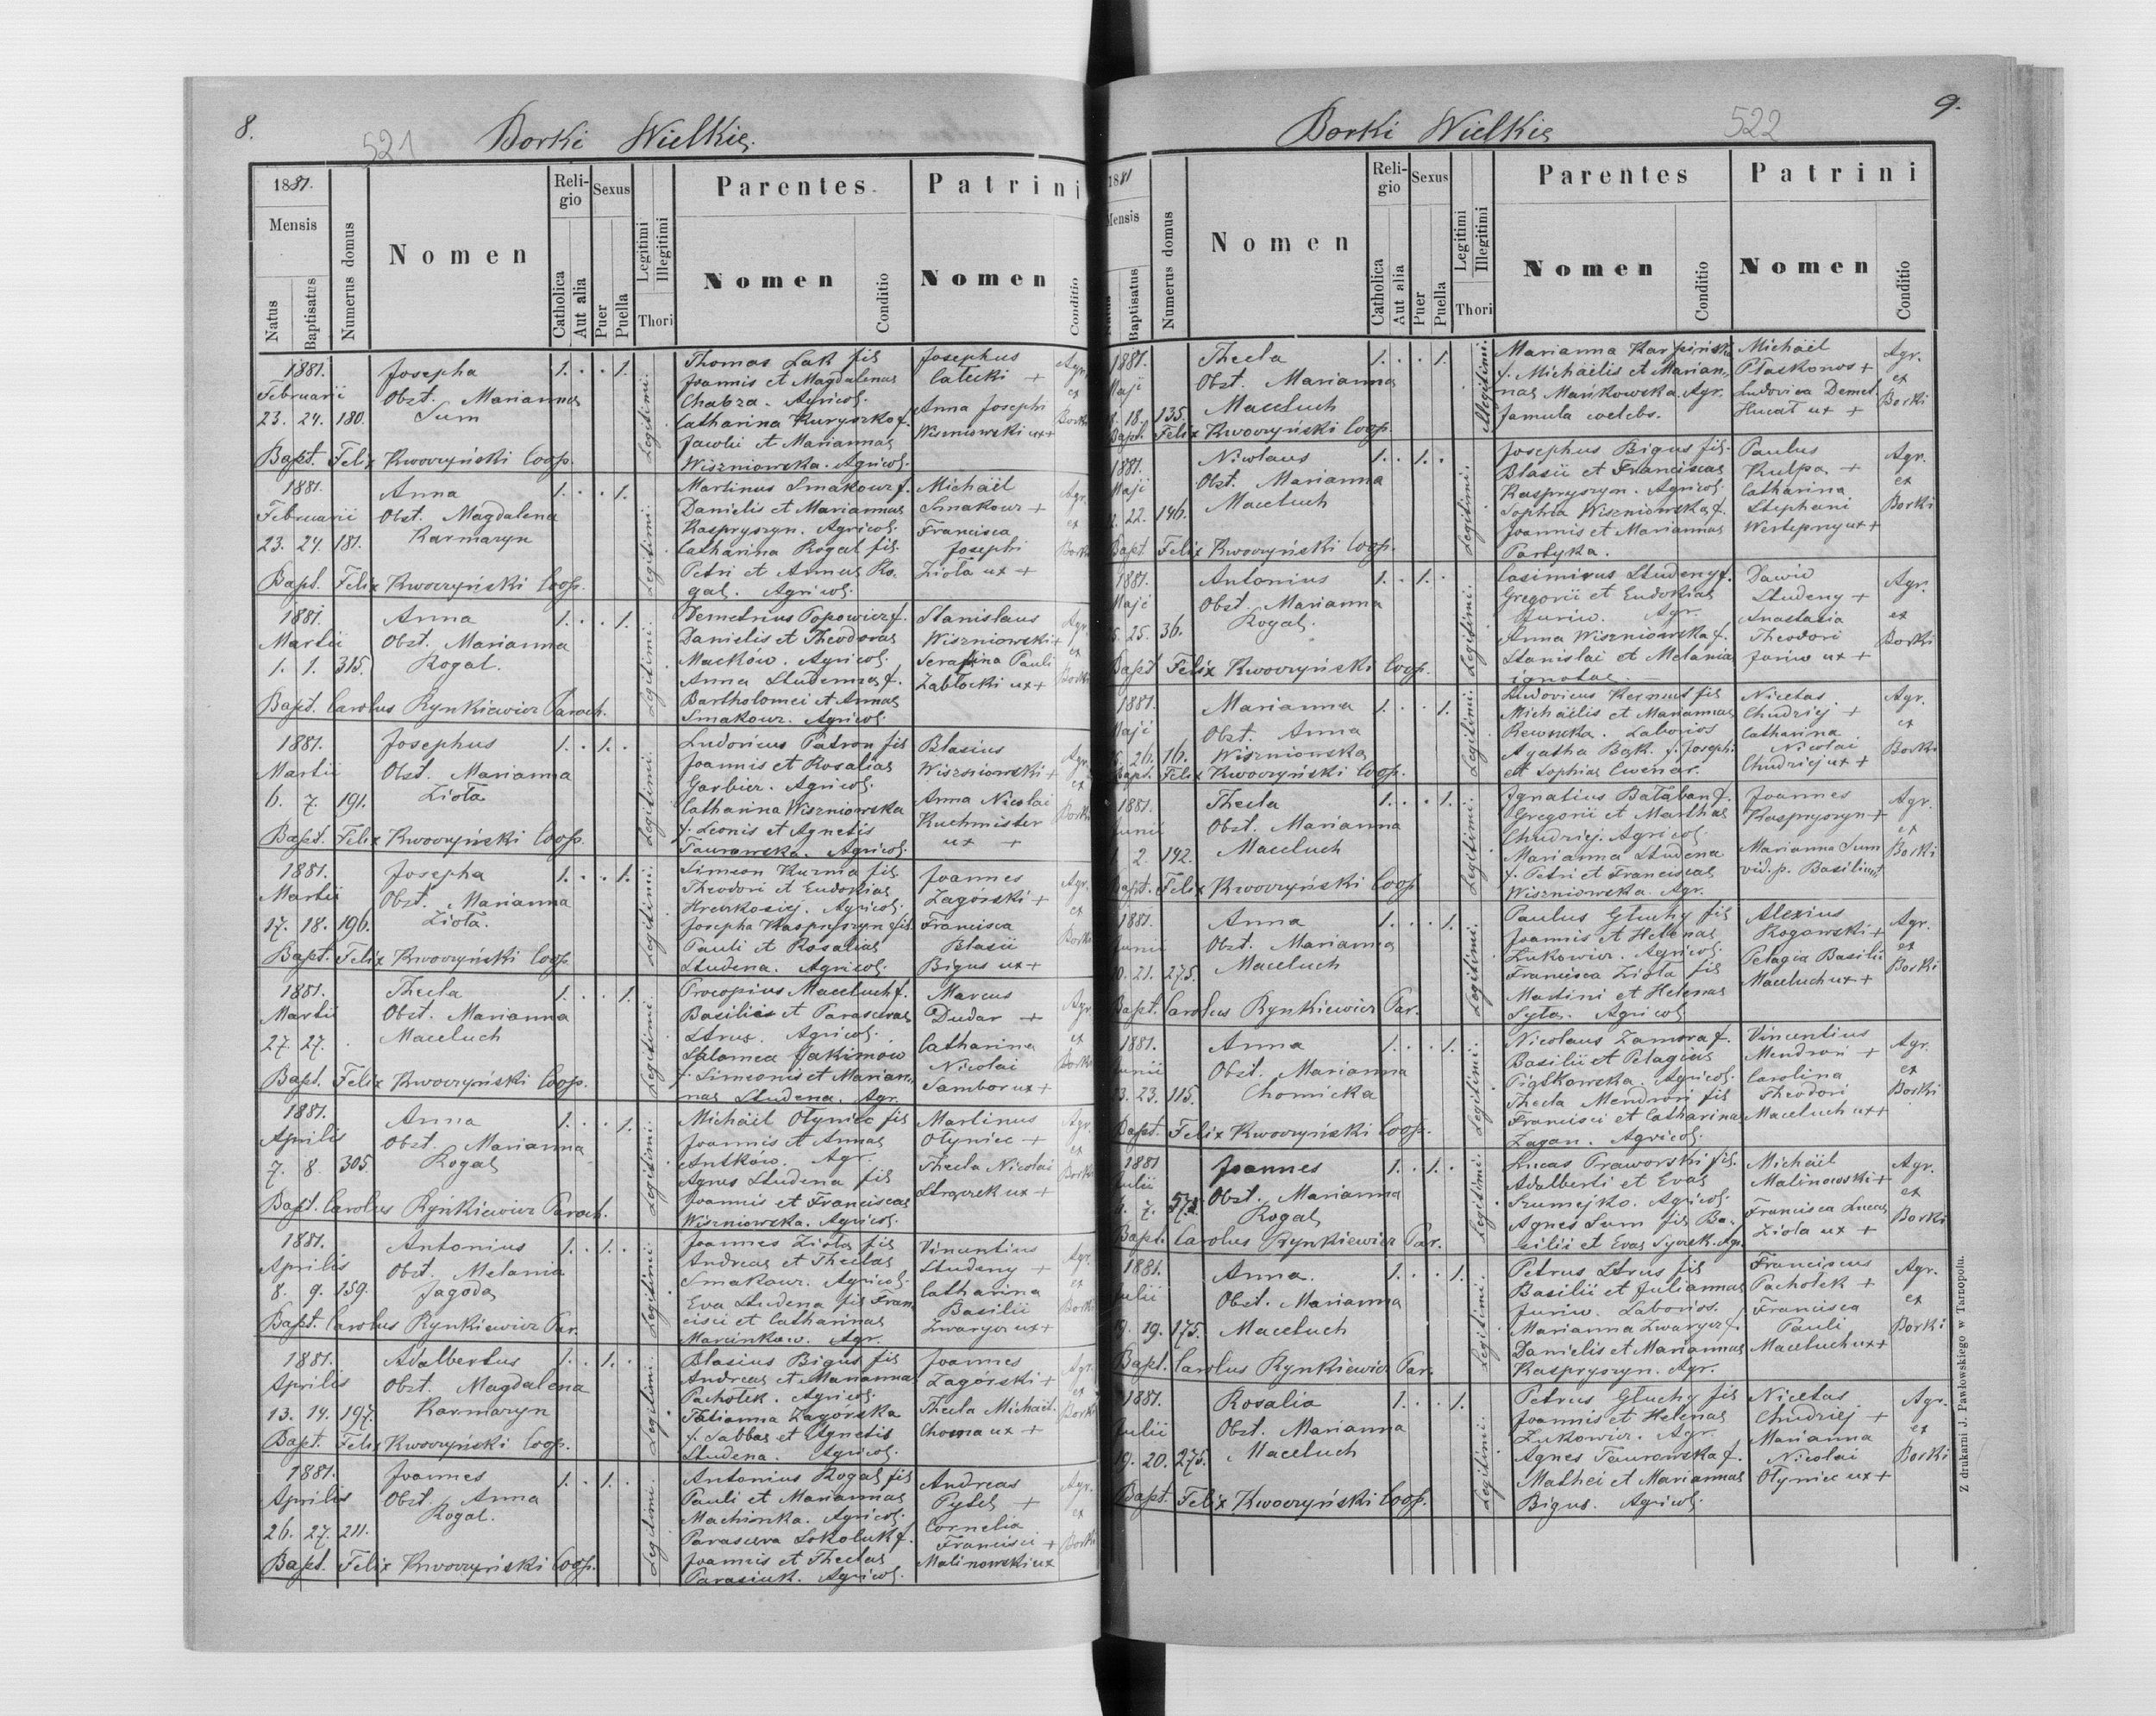 8.
521
Borki Wielkie.
1881.
Mensis
Natus
Baptisatus
Numerus domus
Nomen
Religio
Catholica
Aut alia
Sexus
Puer
Puella
Legitimi
Illegitimi
Thori
Parentes.
Nomen
Conditio
Patrini
Nomen
Conditio
1881.
Februarii
23. 24. 180.
Josepha
Obst. Marianna
Sum
1. . . 1.
Legitimi.
Thomas Łak fil
Joannis et Magdalenae
Chabza. Agricol.
Catharina Kuryszko f.
Pawlii et Mariannae
Wiszniowska. Agricol.
Josephus
Całecki +
Anna Josephi
Wiszniowski ux +
Agr.
ex
Borki
Bapt. Felix Kwoczyński Coop.
1881.
Februarii
23. 24. 181.
Anna
Obst. Magdalena
Karmazyn
1. . . 1.
Legitimi.
Martinus Smakouz f.
Danielis et Mariannae
Kaspryszyn. Agricol.
Catharina Rogal fil.
Petri et Annae Ro-
gal. Agricol.
Michäel
Smakouz +
Francisca
Josephi
Zioła ux +
Agr.
ex
Borki
Bapt. Felix Kwoczyński Coop.
1881.
Martii
1. 1. 315.
Anna
Obst. Marianna
Rogal.
1. . . 1.
Legitimi.
Demetrius Popowicz f.
Danielis et Theodorae
Maćków. Agricol.
Anna Studenna f.
Bartholomei et Annae
Smakouz. Agricol.
Stanislaus
Wiszniowski +
Serafina Pauli
Zabłocki ux +
Agr.
ex
Borki
Bapt. Carolus Rynkiewicz Paroch.
1881.
Martii
6. 7. 191.
Josephus
Obst. Marianna
Zioła
1. . 1. .
Legitimi.
Ludovicus Patron fil
Joannis et Rosaliae
Garbicz. Agricol.
Catharina Wiszniowska
f. Leonis et Agnetis
Taurowska. Agricol.
Blasius
Wiszniowski +
Anna Nicolai
Kuchmister
ux +
Agr.
ex
Borki
Bapt. Felix Kwoczyński Coop.
1881.
Martii
17. 18. 196.
Josepha
Obst. Marianna
Zioła.
1. . . 1.
Legitimi.
Simeon Kurnia fil
Theodori et Eudokiae
Agricol.
Josepha Kaspryszyn fil.
Pauli et Rosaliae
Studena. Agricol.
Joannes
Zagórski +
Francisca
Blasii
Bigus ux +
Agr.
ex
Borki
Bapt. Felix Kwoczyński Coop.
1881.
Martii
27. 27. .
Thecla
Obst. Marianna
Macełuch
1. . . 1.
Legitimi.
Procopius Macełuch f.
Basilii et Parascevae
Strus. Agricol.
Salomea Jakimów
f. Simeonis et Marian-
nae Studena. Agr.
Marcus
Dudar +
Catharina
Nicolai
Sambor ux +
Agr.
ex
Borki
Bapt. Felix Kwoczyński Coop.
1881.
Aprilis
7. 8. 305.
Anna
Obst. Marianna
Rogal
1. . . 1.
Legitimi.
Michäel Ołyniec fil
Joannis et Annae
Antków. Agr.
Agnes Studena fil
Joannis et Franciscae
Wiszniowska. Agricol.
Martinus
Ołyniec +
Thecla Nicolai
ux +
Agr.
ex
Borki
Bapt. Carolus Rynkiewicz Paroch.
1881.
Aprilis
8. 9. 159.
Antonius
Obst. Melania
Jagoda
1. . 1. .
Legitimi.
Joannes Zioła fil
Andreae et Theclae
Smakouz. Agricol.
Eva Studena fil Fran-
cisci et Catharinae
Marcinków. Agr.
Vincentius
Studeny +
Catharina
Basilii
Zwarycz ux +
Agr.
ex
Borki
Bapt. Carolus Rynkiewicz Par.
1881.
Aprilis
13. 14. 197.
Adalbertus
Obst. Magdalena
Karmazyn
1. . 1. .
Legitimi.
Blasius Bigus fil
Andreae et Marianna
Pachołek. Agricol.
Tatianna Zagórska
f. Sabbae et Agnetis
Studena. Agricol.
Joannes
Zagórski +
Thecla Michael.
Choma ux +
Agr.
ex
Borki
Bapt. Felix Kwoczyński Coop.
1881.
Aprilis
26. 27. 211.
Joannes
Obst. Anna
Rogal.
1. . 1. .
Legitimi.
Antonius Rogal fil
Pauli et Mariannae
Machinka. Agricol.
Parasceva Sokoluk f.
Joannis et Theclae
Parasiuk. Agricol.
Andreas
Pytel +
Cornelia
Francisci +
Malinowski ux
Agr.
ex
Borki
Bapt. Felix Kwoczyński Coop.
9.
522
Borki Wielkie
1881
Mensis
Natus
Baptisatus
Numerus domus
Nomen
Religio
Catholica
Aut alia
Sexus
Puer
Puella
Legitimi
Illegitimi
Thori
Parentes
Nomen
Conditio
Patrini
Nomen
Conditio
1881.
Maji
18. 135.
Thecla
Obst. Marianna
Macełuch
1. . . 1.
Illegitimi.
Marianna Karpińska
f. Michäelis et Marian-
nae Mańkowska. Agr.
famula coelebs.
Michäel
Płaskonos +
Ludovica Demet.
Hucał ux +
Agr.
ex
Borki
Bapt. Felix Kwoczyński Coop.
1881.
Maji
22. 146.
Nicolaus
Obst. Marianna
Macełuch
1. . 1. .
Legitimi.
Josephus Bigus fil.
Blasii et Franciscae
Kaspryszyn. Agricol.
Sophia Wiszniowska f.
Joannis et Mariannae
Partyka.
Paulus
Kulpa +
Catharina
Stephani
Westepny ux +
Agr.
ex
Borki
Bapt. Felix Kwoczyński Coop.
1881.
Maji
25. 36.
Antonius
Obst. Marianna
Rogal.
1. . 1. .
Legitimi.
Casimirus Studeny f.
Gregorii et Eudokiae
Juriw. Agr.
Anna Wiszniowska f.
Stanislai et Melaniae
ignotae.
Dawid
Studeny +
Anastasia
Theodori
Juriw ux +
Agr.
ex
Borki
Bapt. Felix Kwoczyński Coop.
1881.
Maji
26. 16.
Marianna
Obst. Anna
Wiszniowska
1. . . 1.
Legitimi.
Ludovicus fil
Michäelis et Mariannae
Laborios
Agatha Bąk. f. Joseph.
et Sophiae Cwenar.
Nicetas
Chudziej +
Catharina
Nicolai
Chudziej ux +
Agr.
ex
Borki
Bapt. Felix Kwoczyński Coop.
1881.
Junii
2. 192.
Thecla
Obst. Marianna
Macełuch
1. . . 1.
Legitimi.
Ignatius Bałaban f.
Gregorii et Marthae
Chudziej. Agricol.
Marianna Studena
f. Petri et Franciscae
Wiszniowska. Agr.
Joannes
Kaspryszyn +
Marianna Sum
vid. p. Basilium
Agr.
ex
Borki
Bapt. Felix Kwoczyński Coop.
1881.
Junii
20. 21. 275.
Anna
Obst. Marianna
Macełuch
1. . . 1.
Legitimi.
Paulus Głuchy fil
Joannis et Helenae
Łukowicz. Agricol.
Francisca Zioła fil
Martini et Helenae
Syta. Agricol
Alexius
Rogowski +
Pelagia Basilii
Macełuch ux +
Agr.
ex
Borki
Bapt. Carolus Rynkiewicz Par.
1881.
Junii
23. 23. 115.
Anna
Obst. Marianna
Chomicka
1. . . 1.
Legitimi.
Nicolaus Zamora f.
Basilii et Pelagiae
Piątkowska. Agricol.
Thecla Mendroń fil
Francisci et Catharinae
Zagan. Agricol.
Vincentius
Mendroń +
Carolina
Theodori
Macełuch ux +
Agr.
ex
Borki
Bapt. Felix Kwoczyński Coop.
1881
Julii
6. 7.
Joannes
Obst. Marianna
Rogal
1. . 1. .
Legitimi.
Lucas Praworski fil.
Adalberti et Evae
Szumejko. Agricol.
Agnes Sum fil Ba-
silii et Evae Agr.
Michäel
Malinowski +
Francisca Lucae
Zioła ux +
Agr.
ex
Borki
Bapt. Carolus Rynkiewicz Par.
1881.
Julii
19. 19. 175.
Anna.
Obst. Marianna
Macełuch
1. . . 1.
Legitimi.
Petrus Strus fil
Basilii et Juliannae
Juriw. Laborios.
Marianna Zwarycz f.
Danielis et Mariannae
Kaspryszyn. Agr.
Franciscus
Pachołek +
Francisca
Pauli
Macełuch ux +
Agr.
ex
Borki
Bapt. Carolus Rynkiewicz Par.
1881.
Julii
19. 20. 275.
Rosalia
Obst. Marianna
Macełuch
1. . . 1.
Legitimi.
Petrus Głuchy fil
Joannis et Helenae
Łukowicz. Agr.
Agnes Taurowska f.
Mathei et Mariannae
Bigus. Agricol.
Nicetas
Chudziej +
Marianna
Nicolai
Ołyniec ux +
Agr.
ex
Borki
Bapt. Felix Kwoczyński Coop.
Z drukarni J. Pawłowskiego w Tarnopolu.